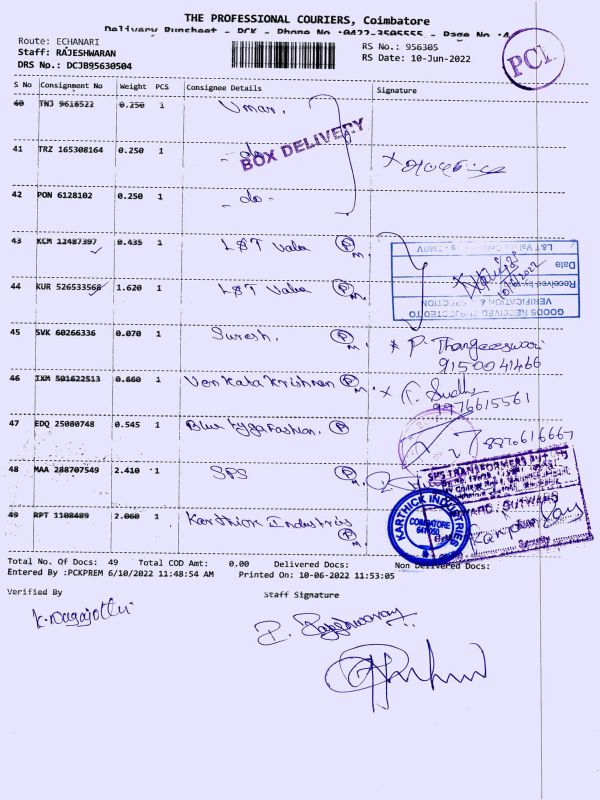 THE PROFESSIONAL COURIERS, Coimbatore
Delivery Runsheet - PCK - Phone No :0422-3505555 - Page No :4
Route: ECHANARI
Staff: RAJESHWARAN
DRS No.: DCJB95630504
RS No.: 956305
RS Date: 10-Jun-2022
PCI
S No Consignment No Weight PCS Consignee Details Signature
40 TNJ 9616522 0.250 1 Umar.
BOX DELIVERY
41 TRZ 165308164 0.250 1 - do -
42 PON 6128102 0.250 1 - do -
43 KCM 12487397 0.435 1 L&T Valve P M.
44 KUR 526533568 1.620 1 L&T Valve P M.
L&T Valves
Date
Received by
10/6/2022
GOODS RECEIVED SUBJECTED TO
VERIFICATION & INSPECTION
45 SVK 60266336 0.070 1 Suresh. P M. x P. Thangeeswari
9150041466
46 IXM 501622513 0.660 1 Venkata Krishnan P M. x T. Sudha
9976615561
47 EDQ 25080748 0.545 1 Blue tyga Fashion. P
48 MAA 288707549 2.410 1 SPS P M.
SPS TRANSFORMERS
49 RPT 1108489 2.060 1 Karthick Industries P M.
KARTHICK INDUSTRIES
COIMBATORE
Security
Total No. of Docs: 49 Total COD Amt: 0.00 Delivered Docs: Non Delivered Docs:
Entered By :PCKPREM 6/10/2022 11:48:54 AM Printed On: 10-06-2022 11:53:05
Verified By Staff Signature
K. Nagajothi